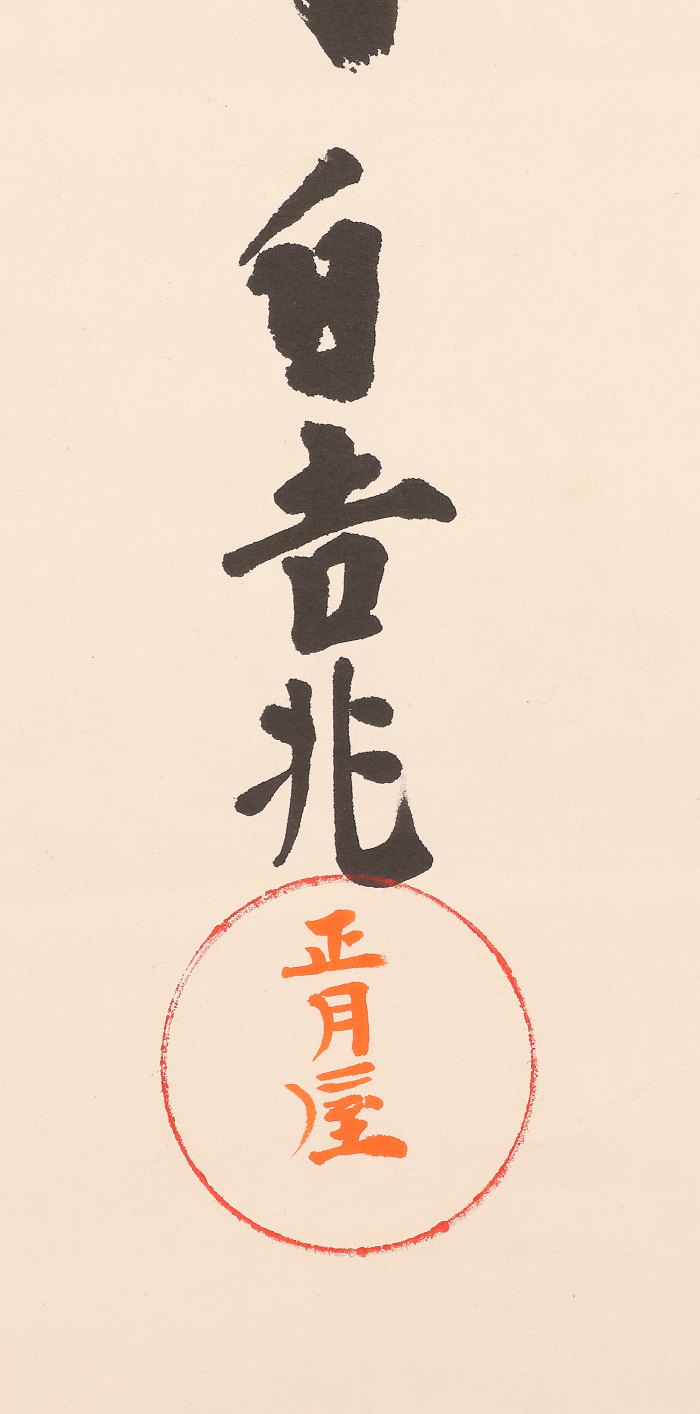 白吉兆
正月屋